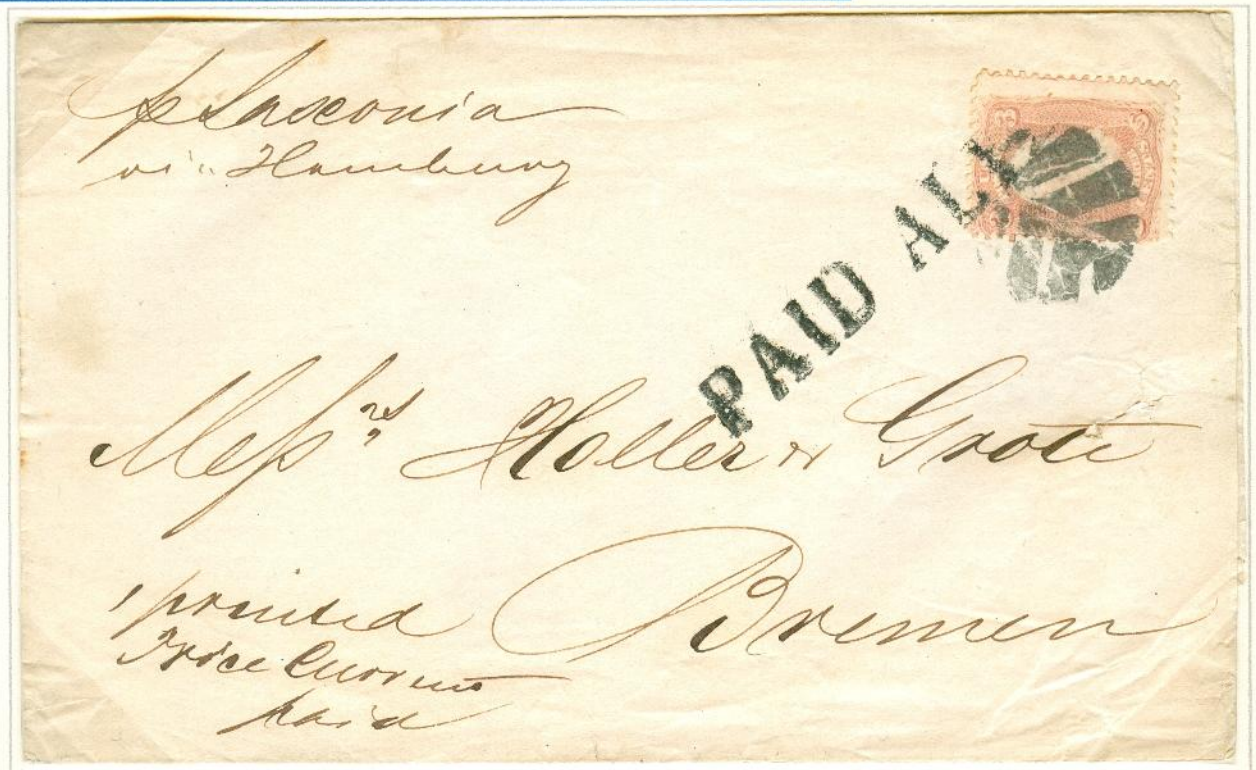 p Saxonia
via Hamburg
PAID ALL
Messrs Holler & Grote
Bremen
printed
Price Current
paid